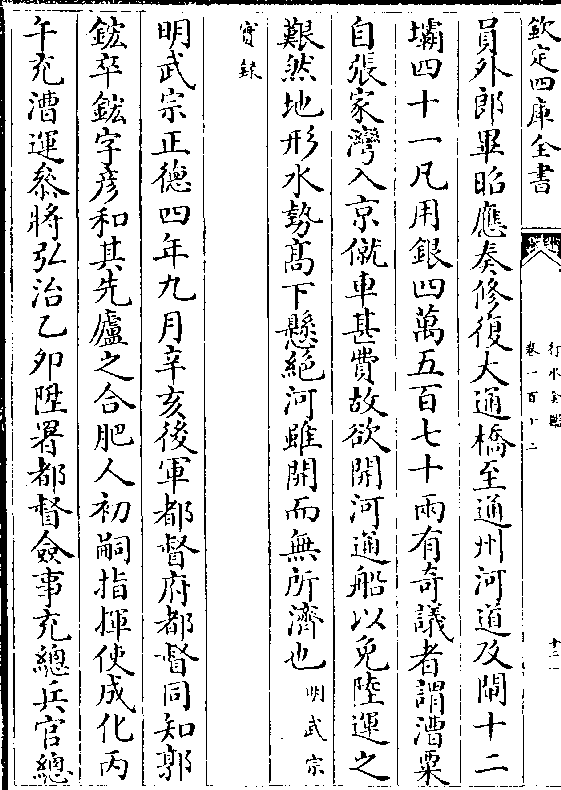 欽定四庫全書
行水金鑑
卷一百十二
十二
員外郎畢昭應奏修復大通橋至通州河道及閘十二
壩四十一凡用銀四萬五百七十兩有奇議者謂漕粟
自張家灣入京僦車甚費故欲開河通船以免陸運之
艱然地形水勢高下懸絶河雖開而無所濟也明武宗
實録
明武宗正德四年九月辛亥後軍都督府都督同知郭
鋐卒鋐字彦和其先廬之合肥人初嗣指揮使成化丙
午充漕運叅將弘治乙卯陞署都督僉事充總兵官總